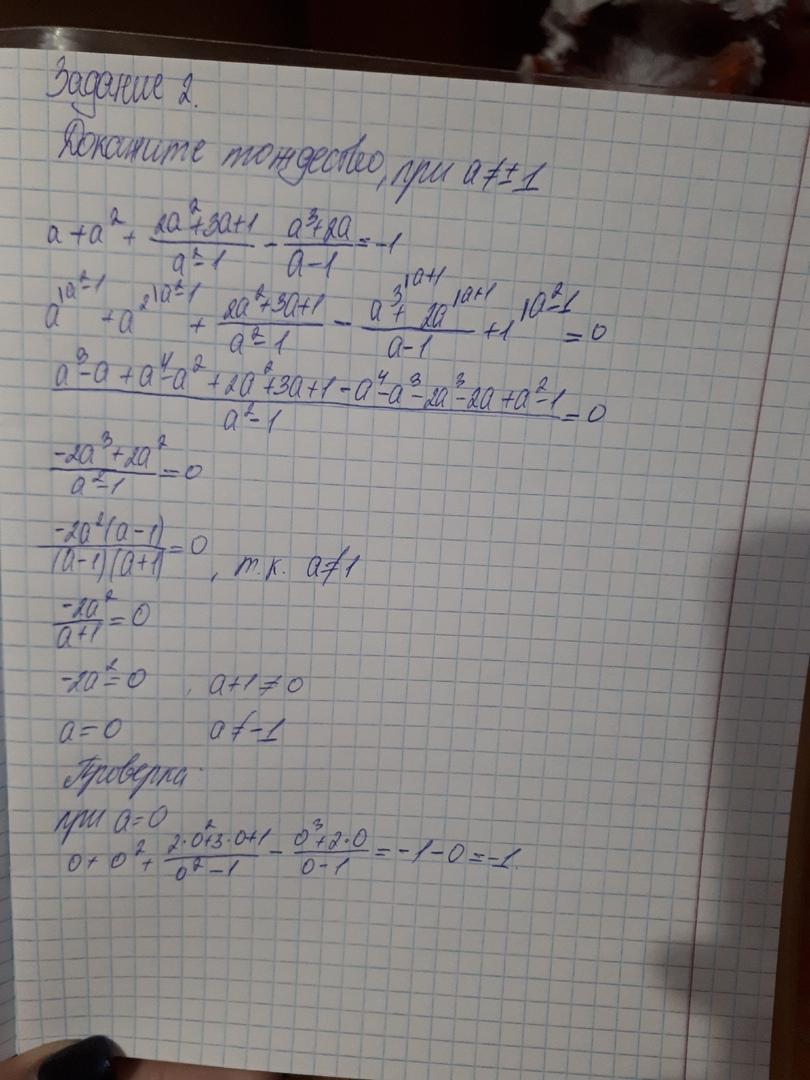 Задание 2.
Докажите тождество, при a≠±1
a+a²+ (2a²+3a+1)/(a²-1) - (a³+2a)/(a-1) = -1
a^{|a²-1} + a²^{|a²-1} + (2a²+3a+1)/(a²-1) - (a³^{|a+1} + 2a^{|a+1})/(a-1) + 1^{|a²-1} = 0
(a³-a+a⁴-a²+2a²+3a+1-a⁴-a³-2a³-2a+a²-1)/(a²-1) = 0
(-2a³+2a²)/(a²-1) = 0
(-2a²(a-1))/((a-1)(a+1)) = 0, т.к. a≠1
(-2a²)/(a+1) = 0
-2a²=0, a+1≠0
a=0 a≠-1
Проверка:
при a=0
0+0²+ (2·0²+3·0+1)/(0²-1) - (0³+2·0)/(0-1) = -1-0=-1.